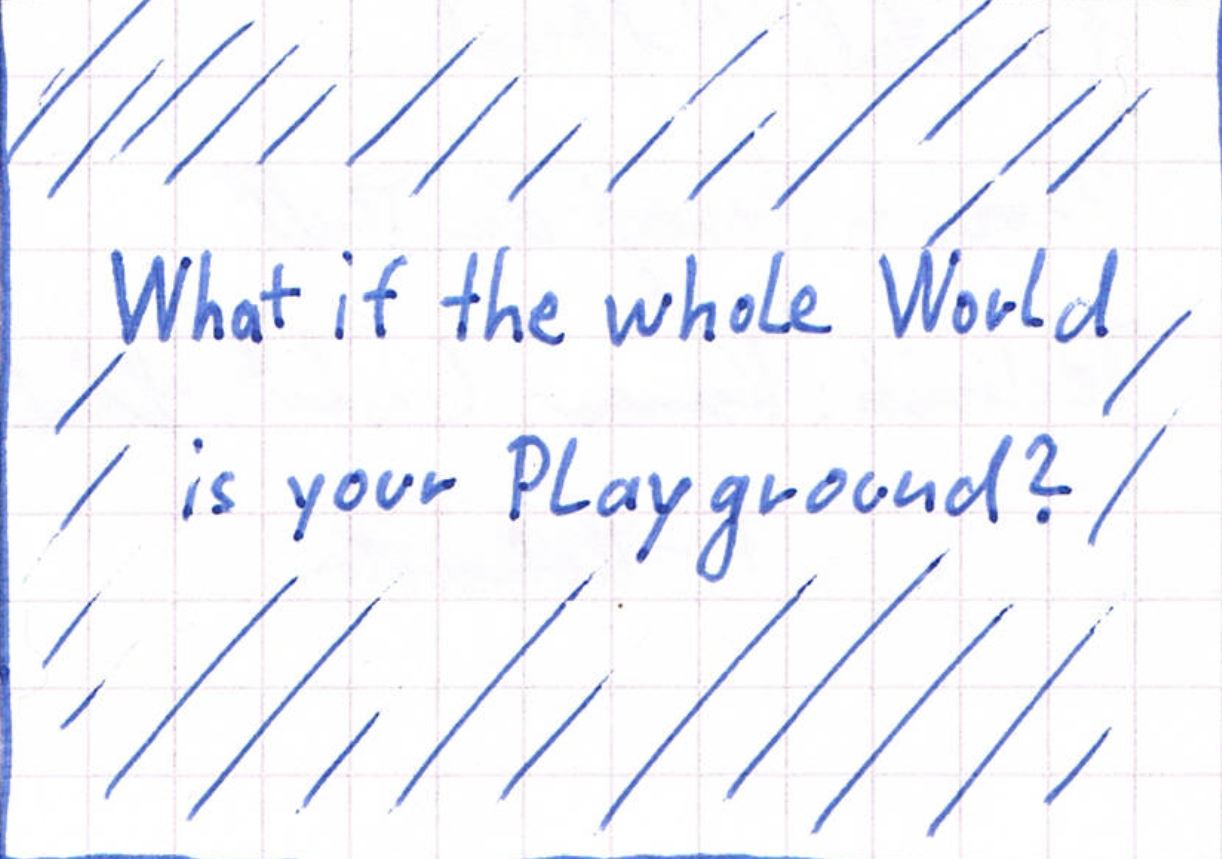 What if the whole World
is your Playground?